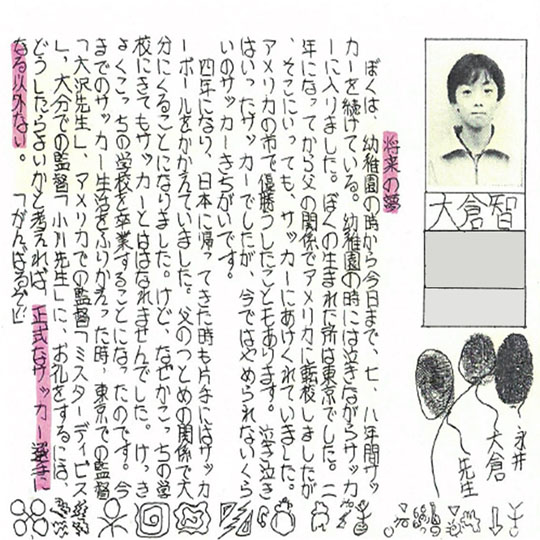 大倉智
永井
大倉
先生
将来の夢
ぼくは、幼稚園の時から今日まで、七、八年間サッ
カーを続けている。幼稚園の時には泣きながらサッカ
ーに入りました。ぼくの生まれた所は東京でした。二
年になってから父の関係でアメリカに転校しましたが
、そこにいっても、サッカーにあけくれていました。
アメリカの市で優勝うしたこともあります。泣き泣き
はいったサッカーでしたが、今ではやめられないくら
いのサッカーきちがいです。
四年になり、日本に帰ってきた時も片手にはサッカ
ーボールをかかえていました。父のつとめの関係で大
分にくることになりました。けど、なぜかこっちの学
校にきてもサッカーとははなれませんでした。けっき
ょくこっちの学校を卒業することになったのです。今
までのサッカー生活をふりかえった時、東京での監督
「大沢先生」、アメリカでの監督「ミスターディビス
」、大分での監督「小川先生」に、お礼をするには、
どうしたらよいかと考えれば、正式なサッカー選手に
なる以外ない。「がんばるぞ!!」